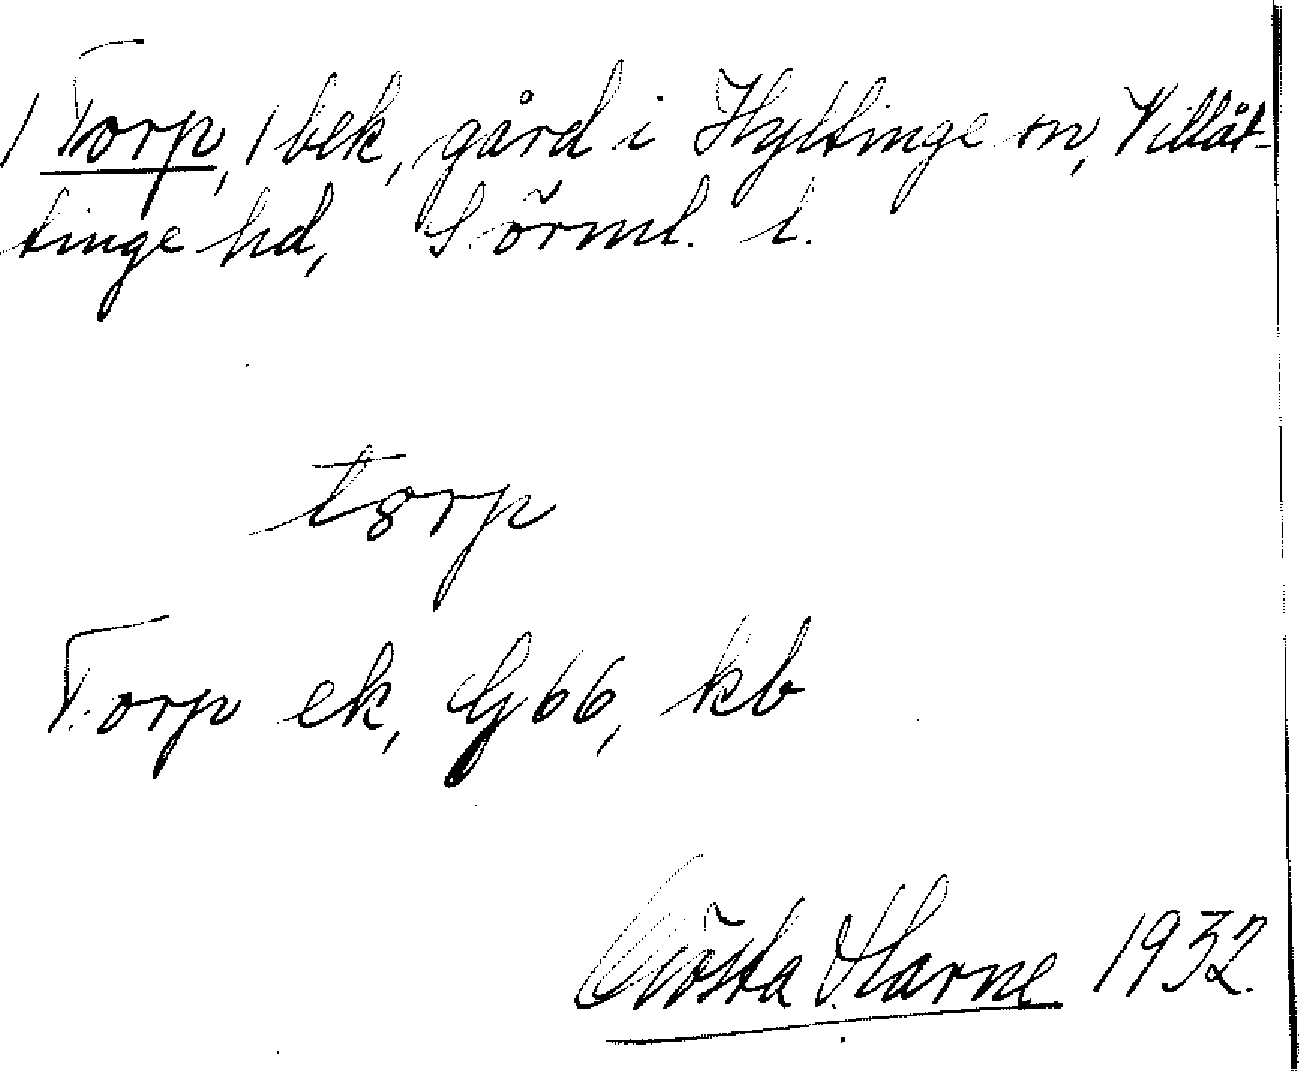 1 Torp, 1 bek, gård i Hyltinge sn, Villåt-
tinge hd, Sörml. l.
tɷrp
Torp ek, G 66, kb
Gösta 1932.